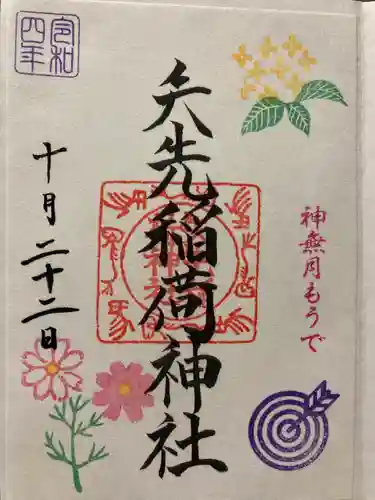 令和
四年
神無月もうで
矢先稲荷神社
十月二十二日